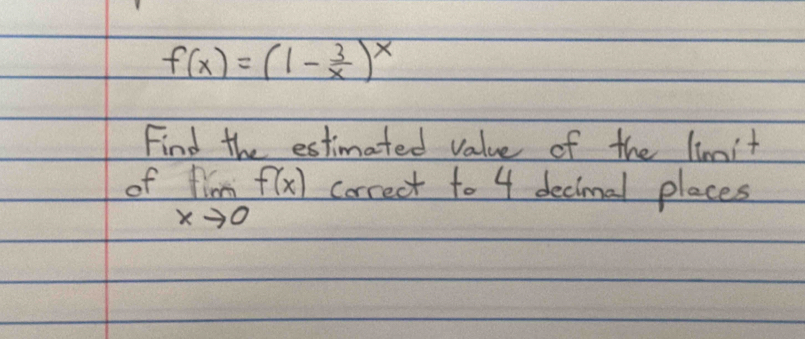 f(x) = (1 - 3/x)^x
Find the estimated value of the limit
of lim f(x) correct to 4 decimal places
x → 0